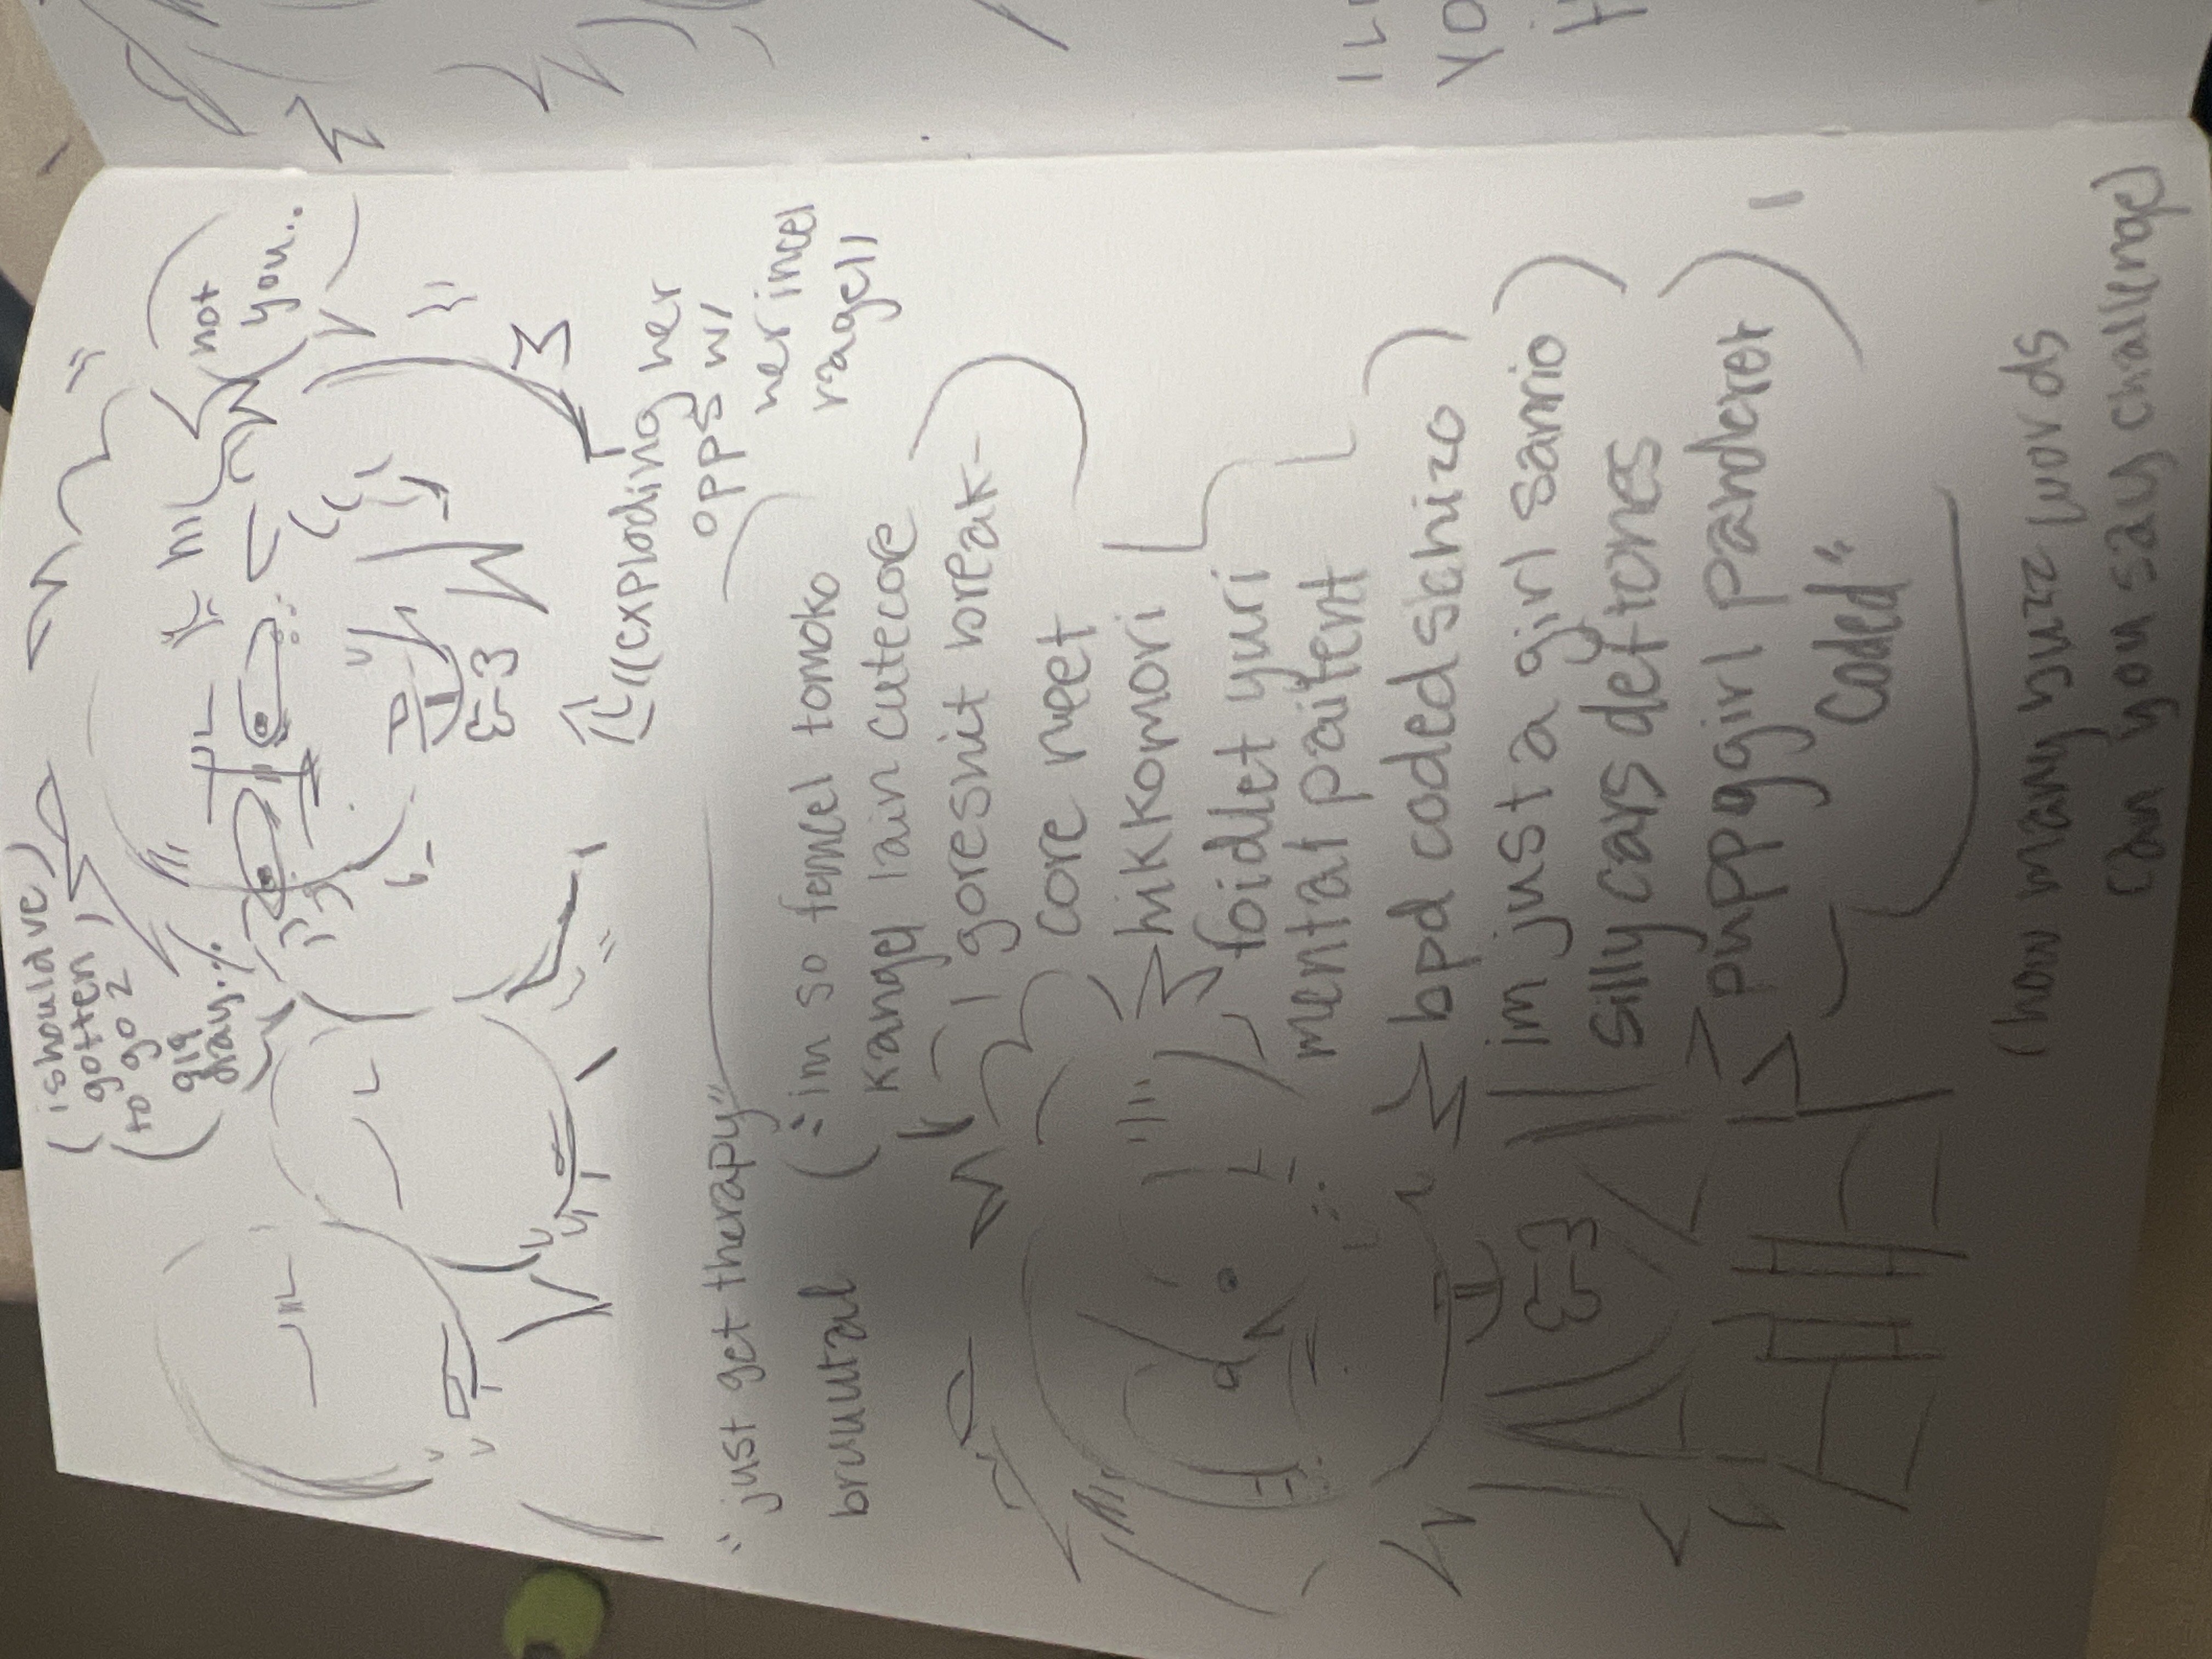 (ishouldave)
gotten
to go 2
gig
day
not
you..
((exploding her
opps w/
her incel
rage))
"just get therapy"
bruuutal
("im so femcel tomoko
kangel lain cutecore
goreshit break-
core neet
hikkomori
foidlet yuri
mental paitent
bpd coded schizo
im just a girl sanrio
silly cars deftones
puppygirl panderer
coded"
(how many buzz words
can you say challenge)